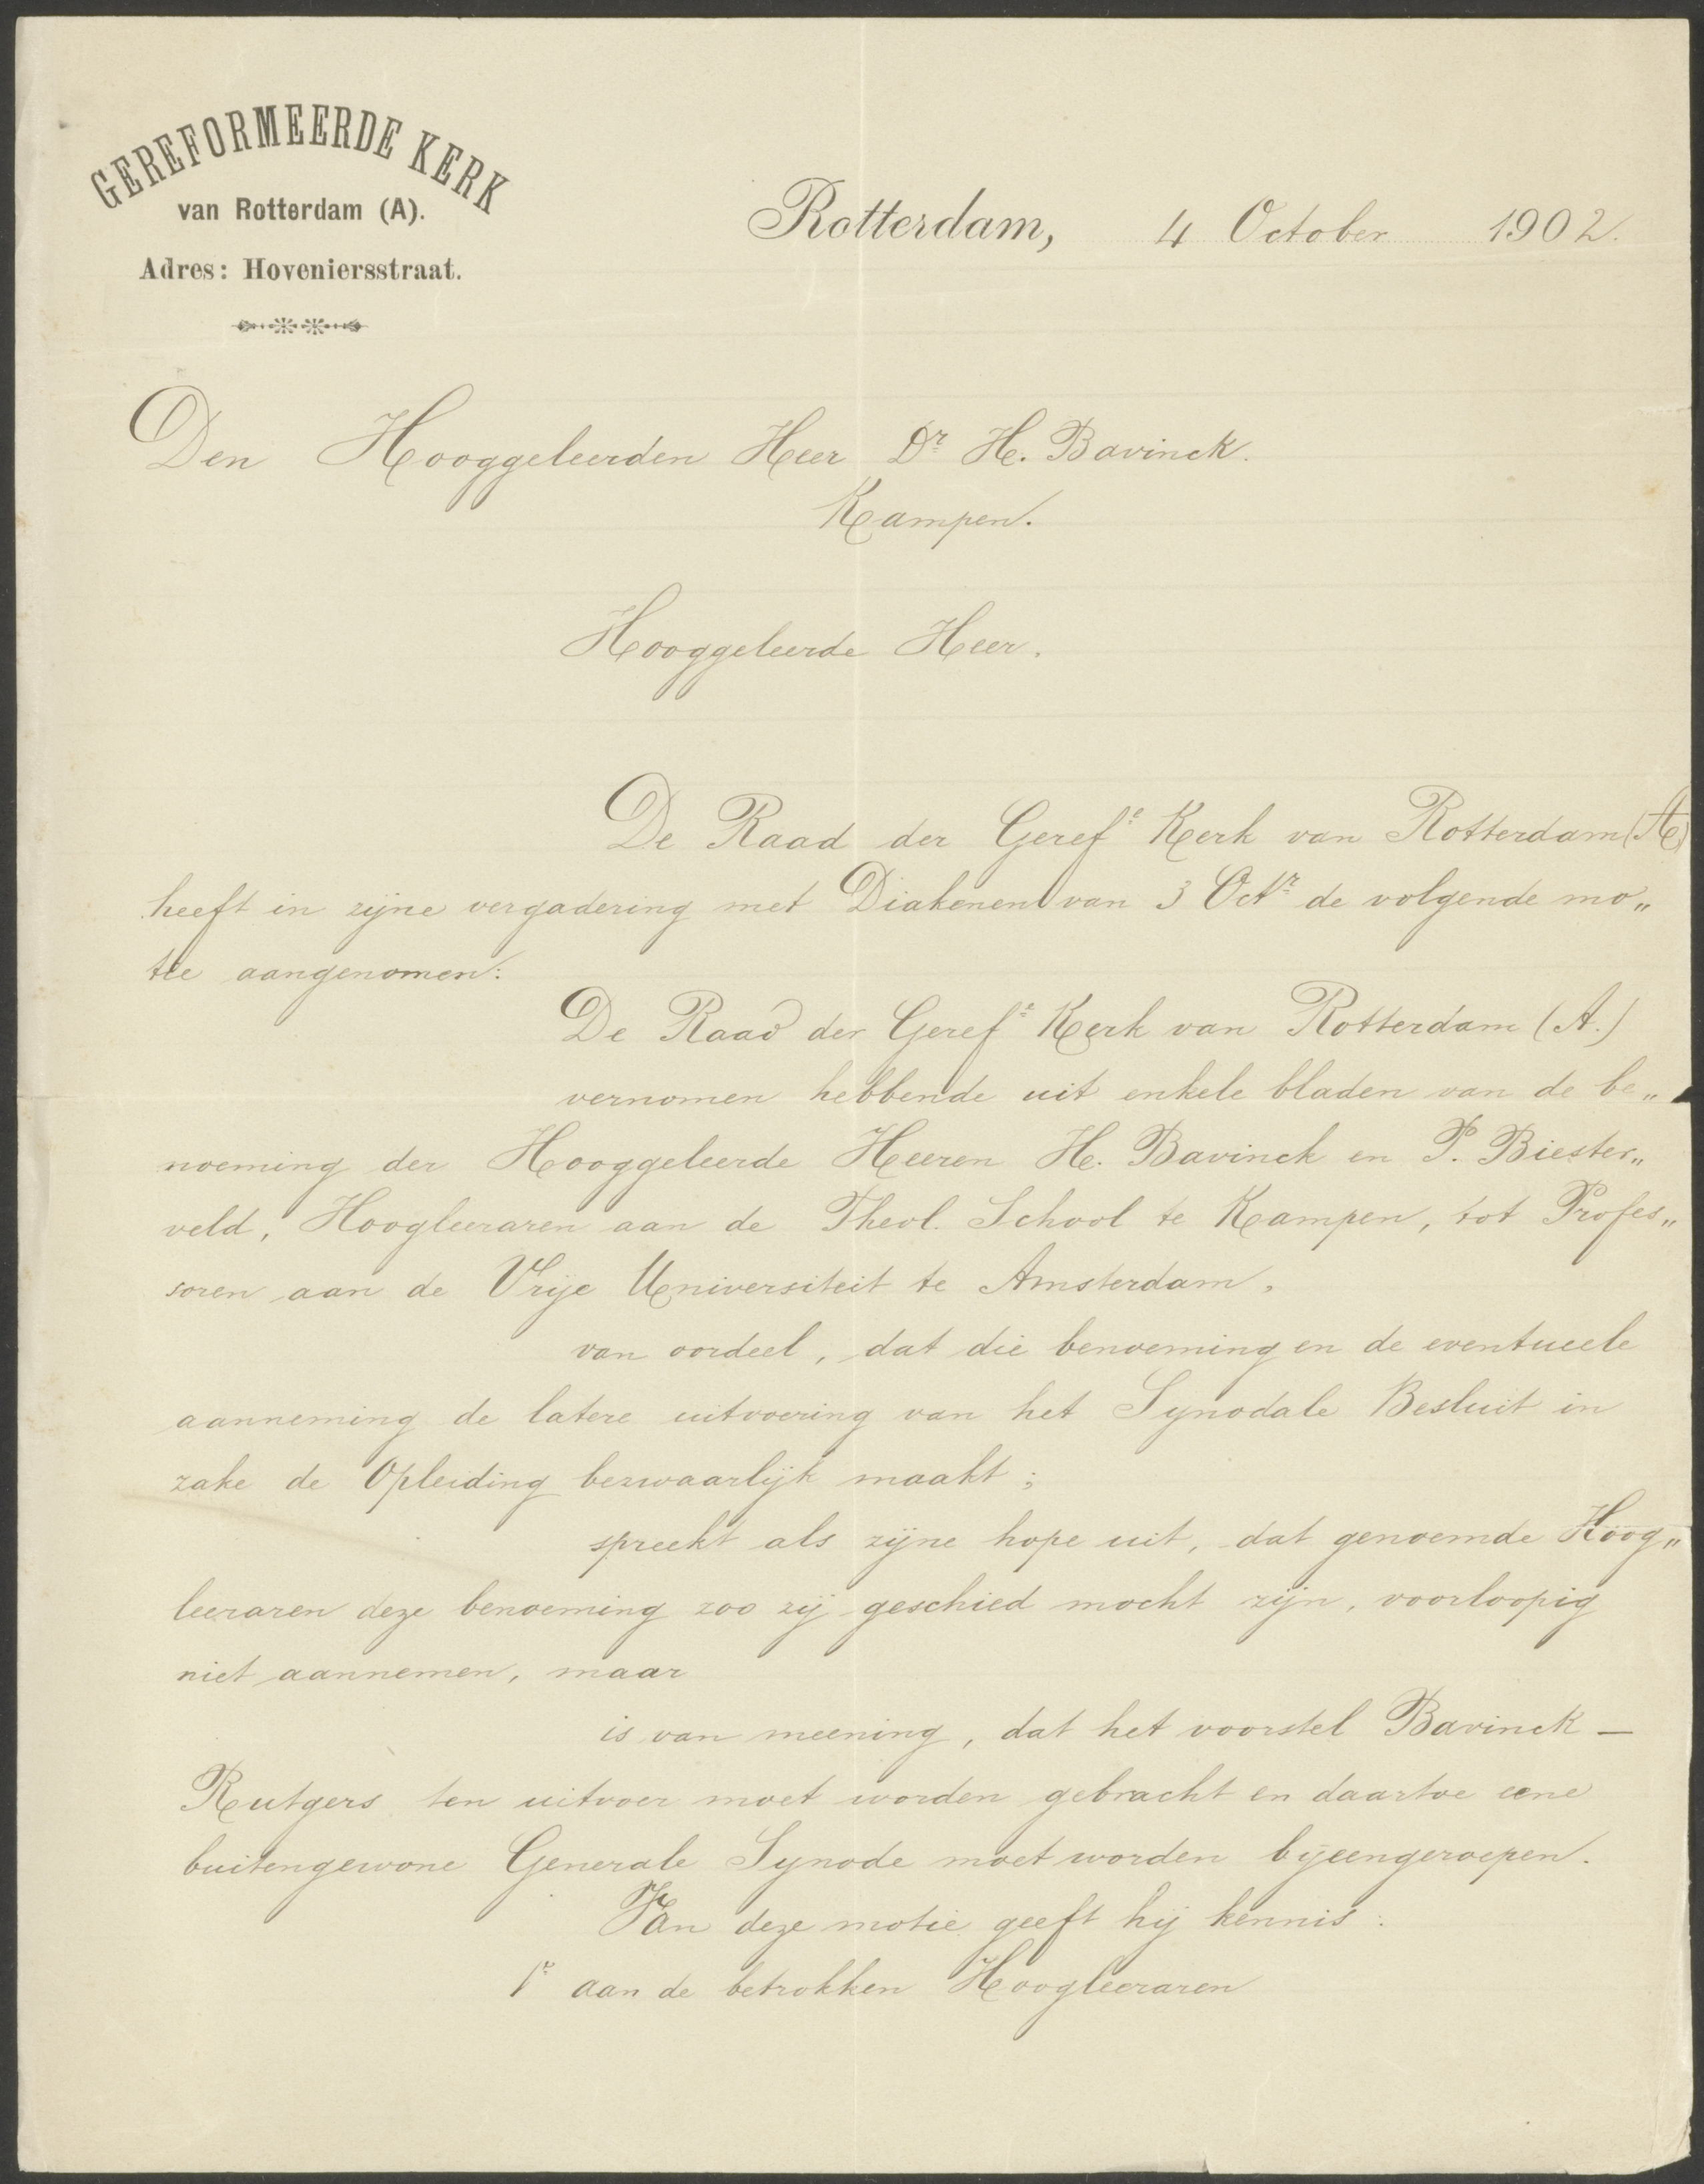 GEREFORMEERDE KERK
van Rotterdam (A).
Adres: Hoveniersstraat.
Rotterdam, 4 October 1902.
Den Hooggeleerden Heer Dr H. Bavinck.
Kampen.
Hooggeleerde Heer.
De Raad der Gerefe Kerk van Rotterdam (A)
heeft in zijne vergadering met Diakenen van 3 Octr de volgende mo„
tie aangenomen:
De Raad der Gerefe Kerk van Rotterdam (A.)
vernomen hebbende uit enkele bladen van de be„
noeming der Hooggeleerde Heeren H. Bavinck en P. Biester„
veld, Hoogleeraren aan de Theol. School te Kampen, tot Profes„
soren aan de Vrije Universiteit te Amsterdam,
van oordeel, dat die benoeming en de eventueele
aanneming de latere uitvoering van het Synodale Besluit in
zake de Opleiding bezwaarlijk maakt;
spreekt als zijne hope uit, dat genoemde Hoog„
leeraren deze benoeming zoo zij geschied mocht zijn, voorloopig
niet aannemen, maar
is van meening, dat het voorstel Bavinck —
Rutgers ten uitvoer moet worden gebracht en daartoe eene
buitengewone Generale Synode moet worden bijeengeroepen.
Van deze motie geeft hij kennis:
1e aan de betrokken Hoogleeraren